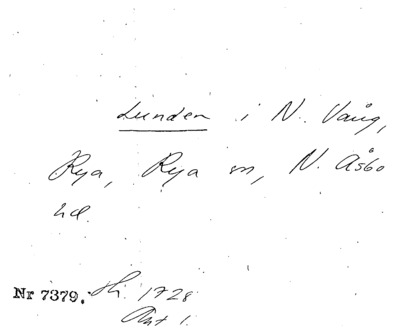 Lunden i N. Vång,
Rya, Rya sn, N. Åsbo
hd.
Nr 7379. Hi. 1728
Akt 1.